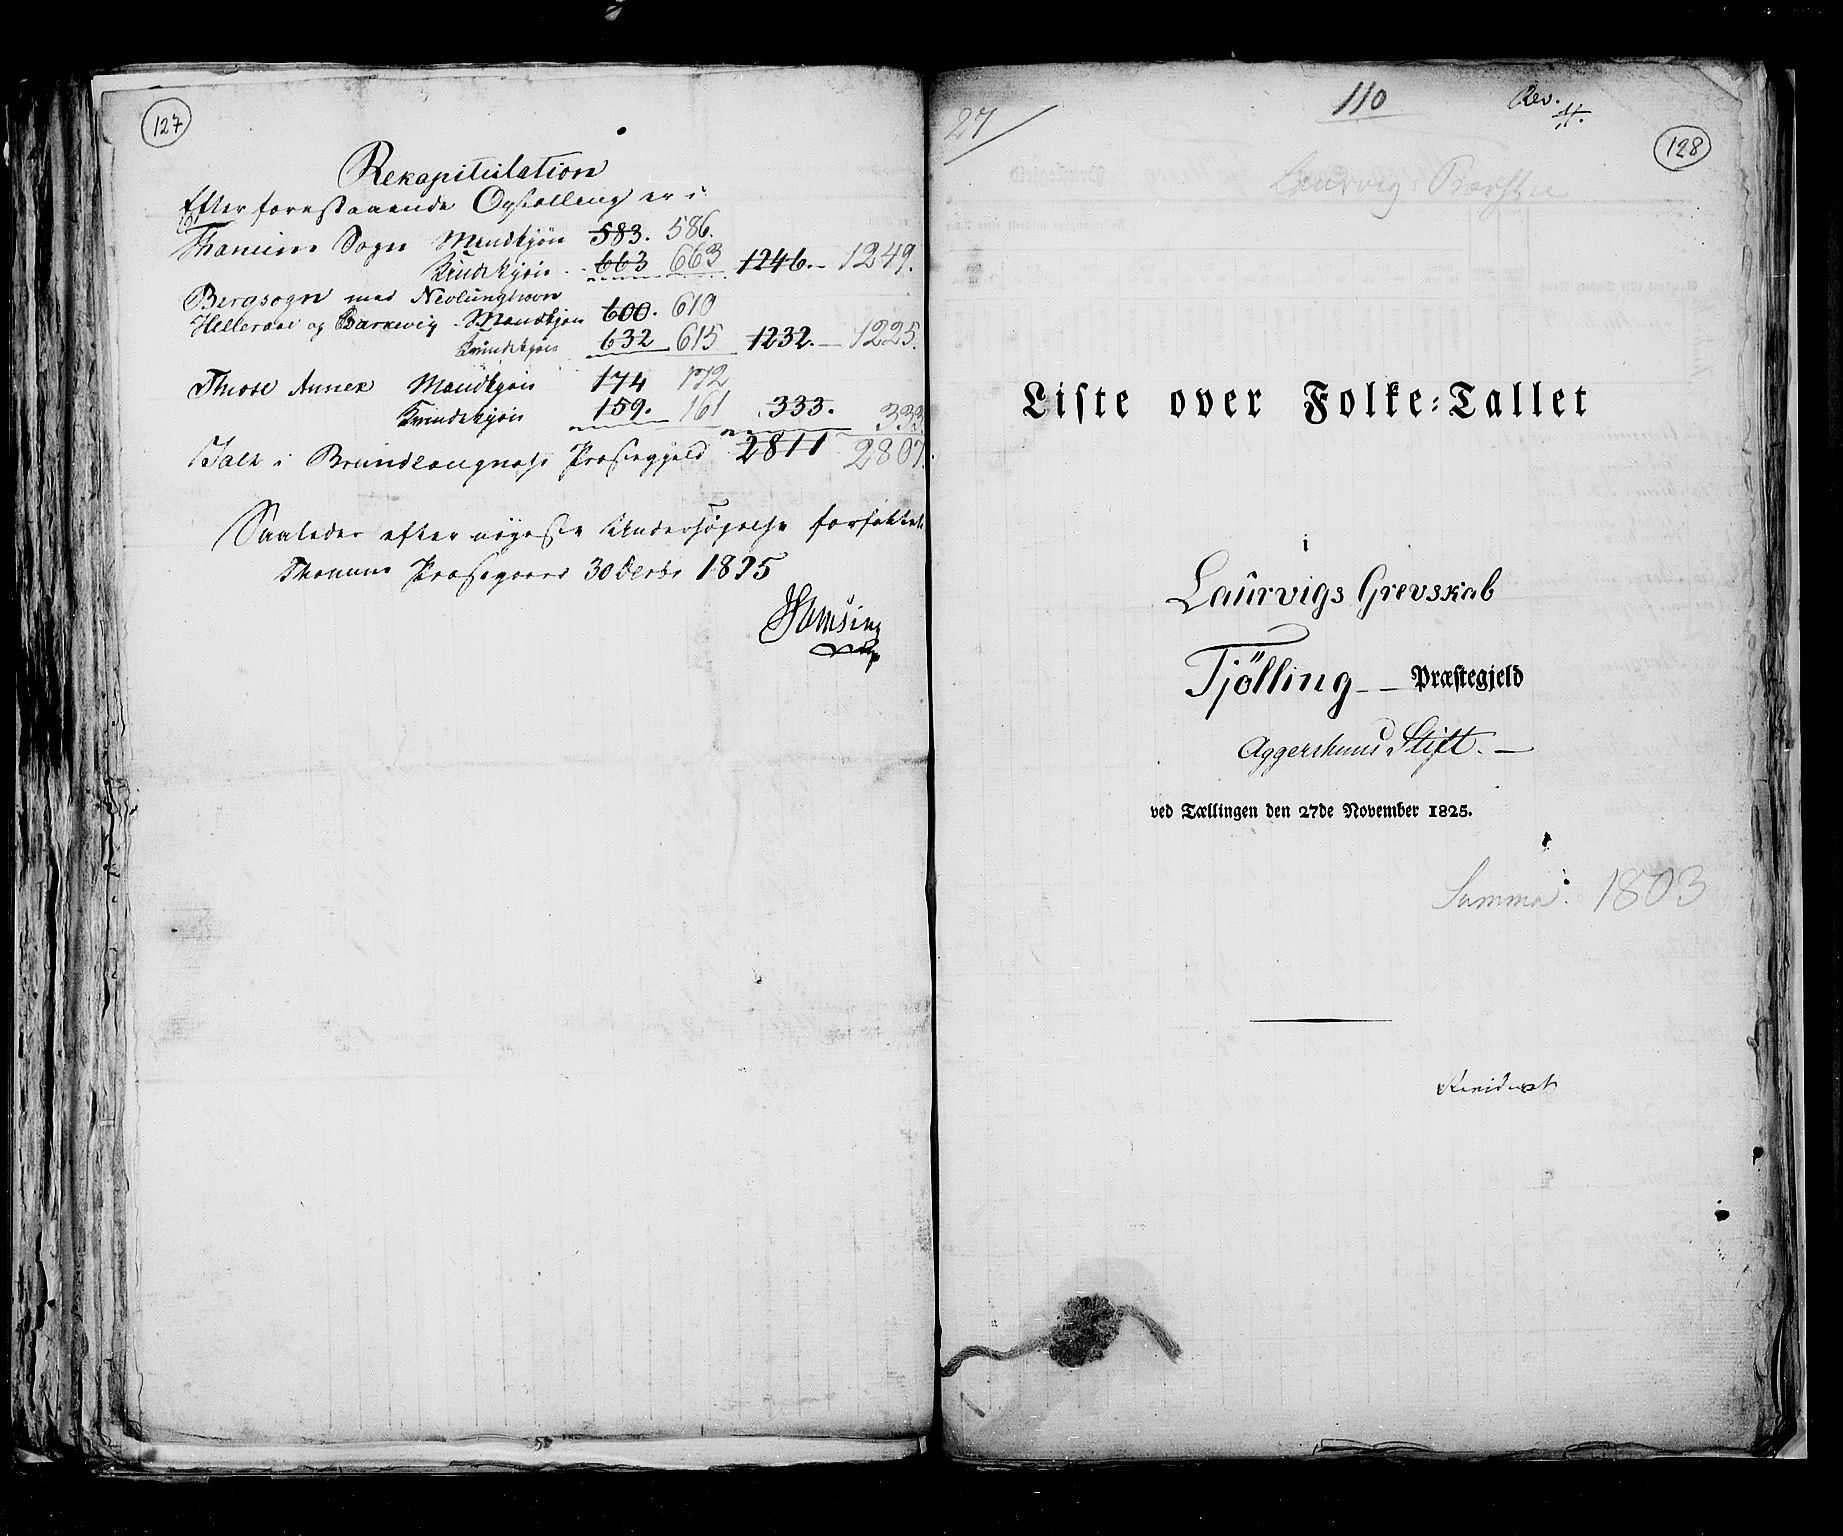 127
Rekapitulation
Efter forestaaende Opstelling er i
Thanums Sogn Mandkjön 583. 586.
Kvindekjön 663 663 1246. 1249.
Bergsogn med Nevlunghavn
Helleraae og Barkevig Mandkjön 600. 610
Kvindekjön 632 615 1232. 1225.
Thiose Annex Mandkjön 174 172
Kvindekjön 159. 161 333. 333.
Ialt i Brundlaugnæss Præstegjeld 2811 2807.
Saaledes efter nöyeste Undersögelse forfattet
Thanums Præstegaard 30 Decbr 1825
27
110
Rev.
128
Laurvig
Liste over Folke-Tallet
i
Laurvigs Grevskab
Tjölling Præstegjeld
Aggershuus Stift.
ved Tællingen den 27de November 1825.
Summa: 1803
Revideret